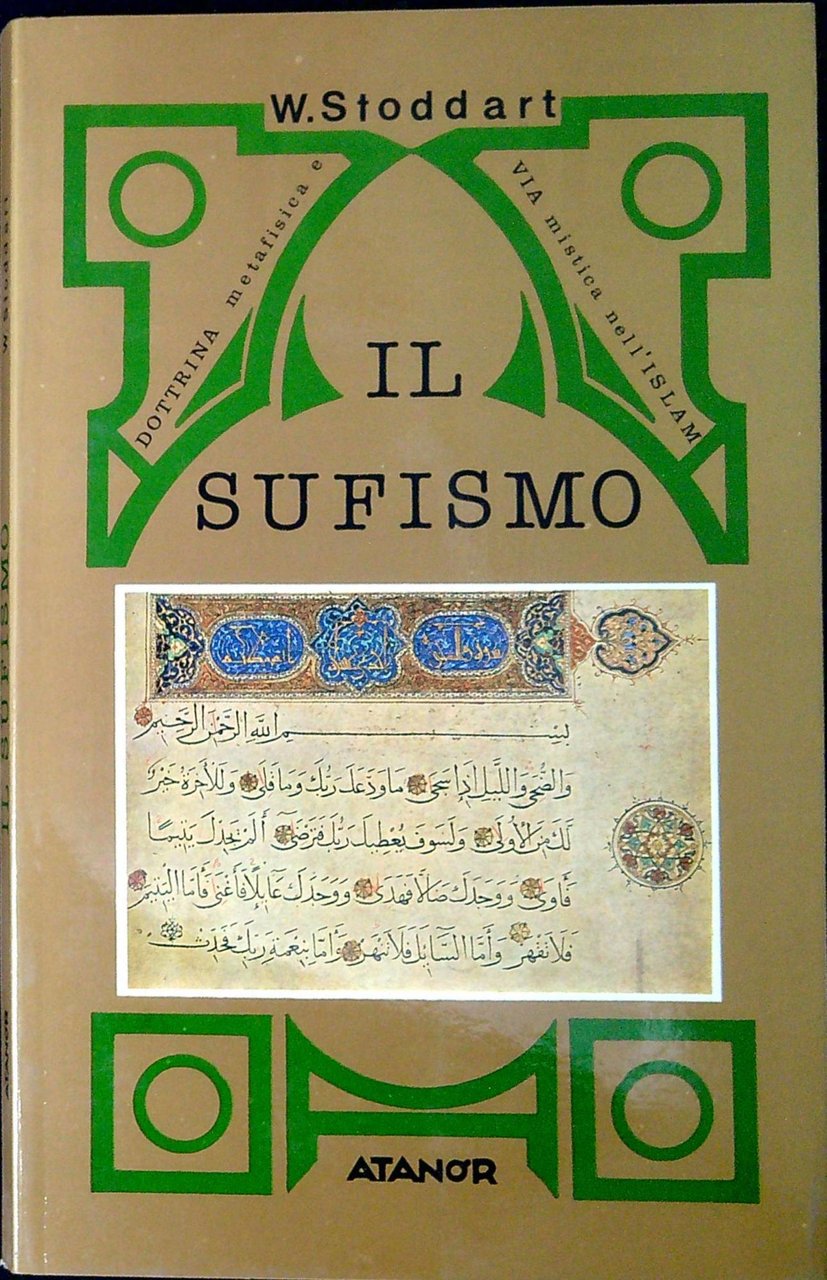 W.Stoddart
DOTTRINA metafisica e
VIA mistica nell'ISLAM
IL
SUFISMO
بسم الله الرحمن الرحيم
وَالضُّحَى وَاللَّيْلِ إِذَا سَجَى مَا وَدَّعَكَ رَبُّكَ وَمَا قَلَى وَلَلْآخِرَةُ خَيْرٌ
لَكَ مِنَ الْأُولَى وَلَسَوْفَ يُعْطِيكَ رَبُّكَ فَتَرْضَى أَلَمْ يَجِدْكَ يَتِيمًا
فَآوَى وَوَجَدَكَ ضَالًّا فَهَدَى وَوَجَدَكَ عَائِلًا فَأَغْنَى فَأَمَّا الْيَتِيمَ
فَلَا تَقْهَرْ وَأَمَّا السَّائِلَ فَلَا تَنْهَرْ وَأَمَّا بِنِعْمَةِ رَبِّكَ فَحَدِّثْ
ATANÒR
W. Stoddart
IL SUFISMO
ATANÒR